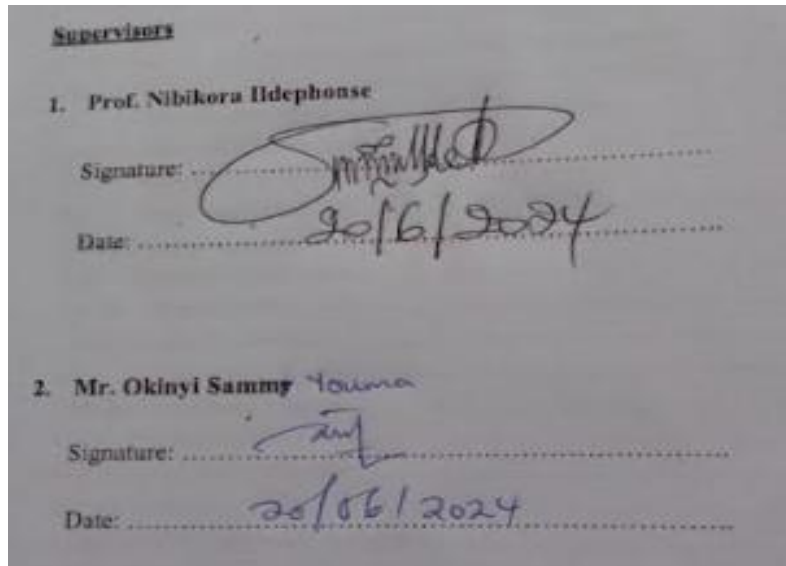 Supervisors
1. Prof. Nibikora Ildephonse
Signature: ........................
Date: ........ 20/6/2024 ........
2. Mr. Okinyi Sammy Youma
Signature: ........................
Date: ........ 20/06/2024 ........